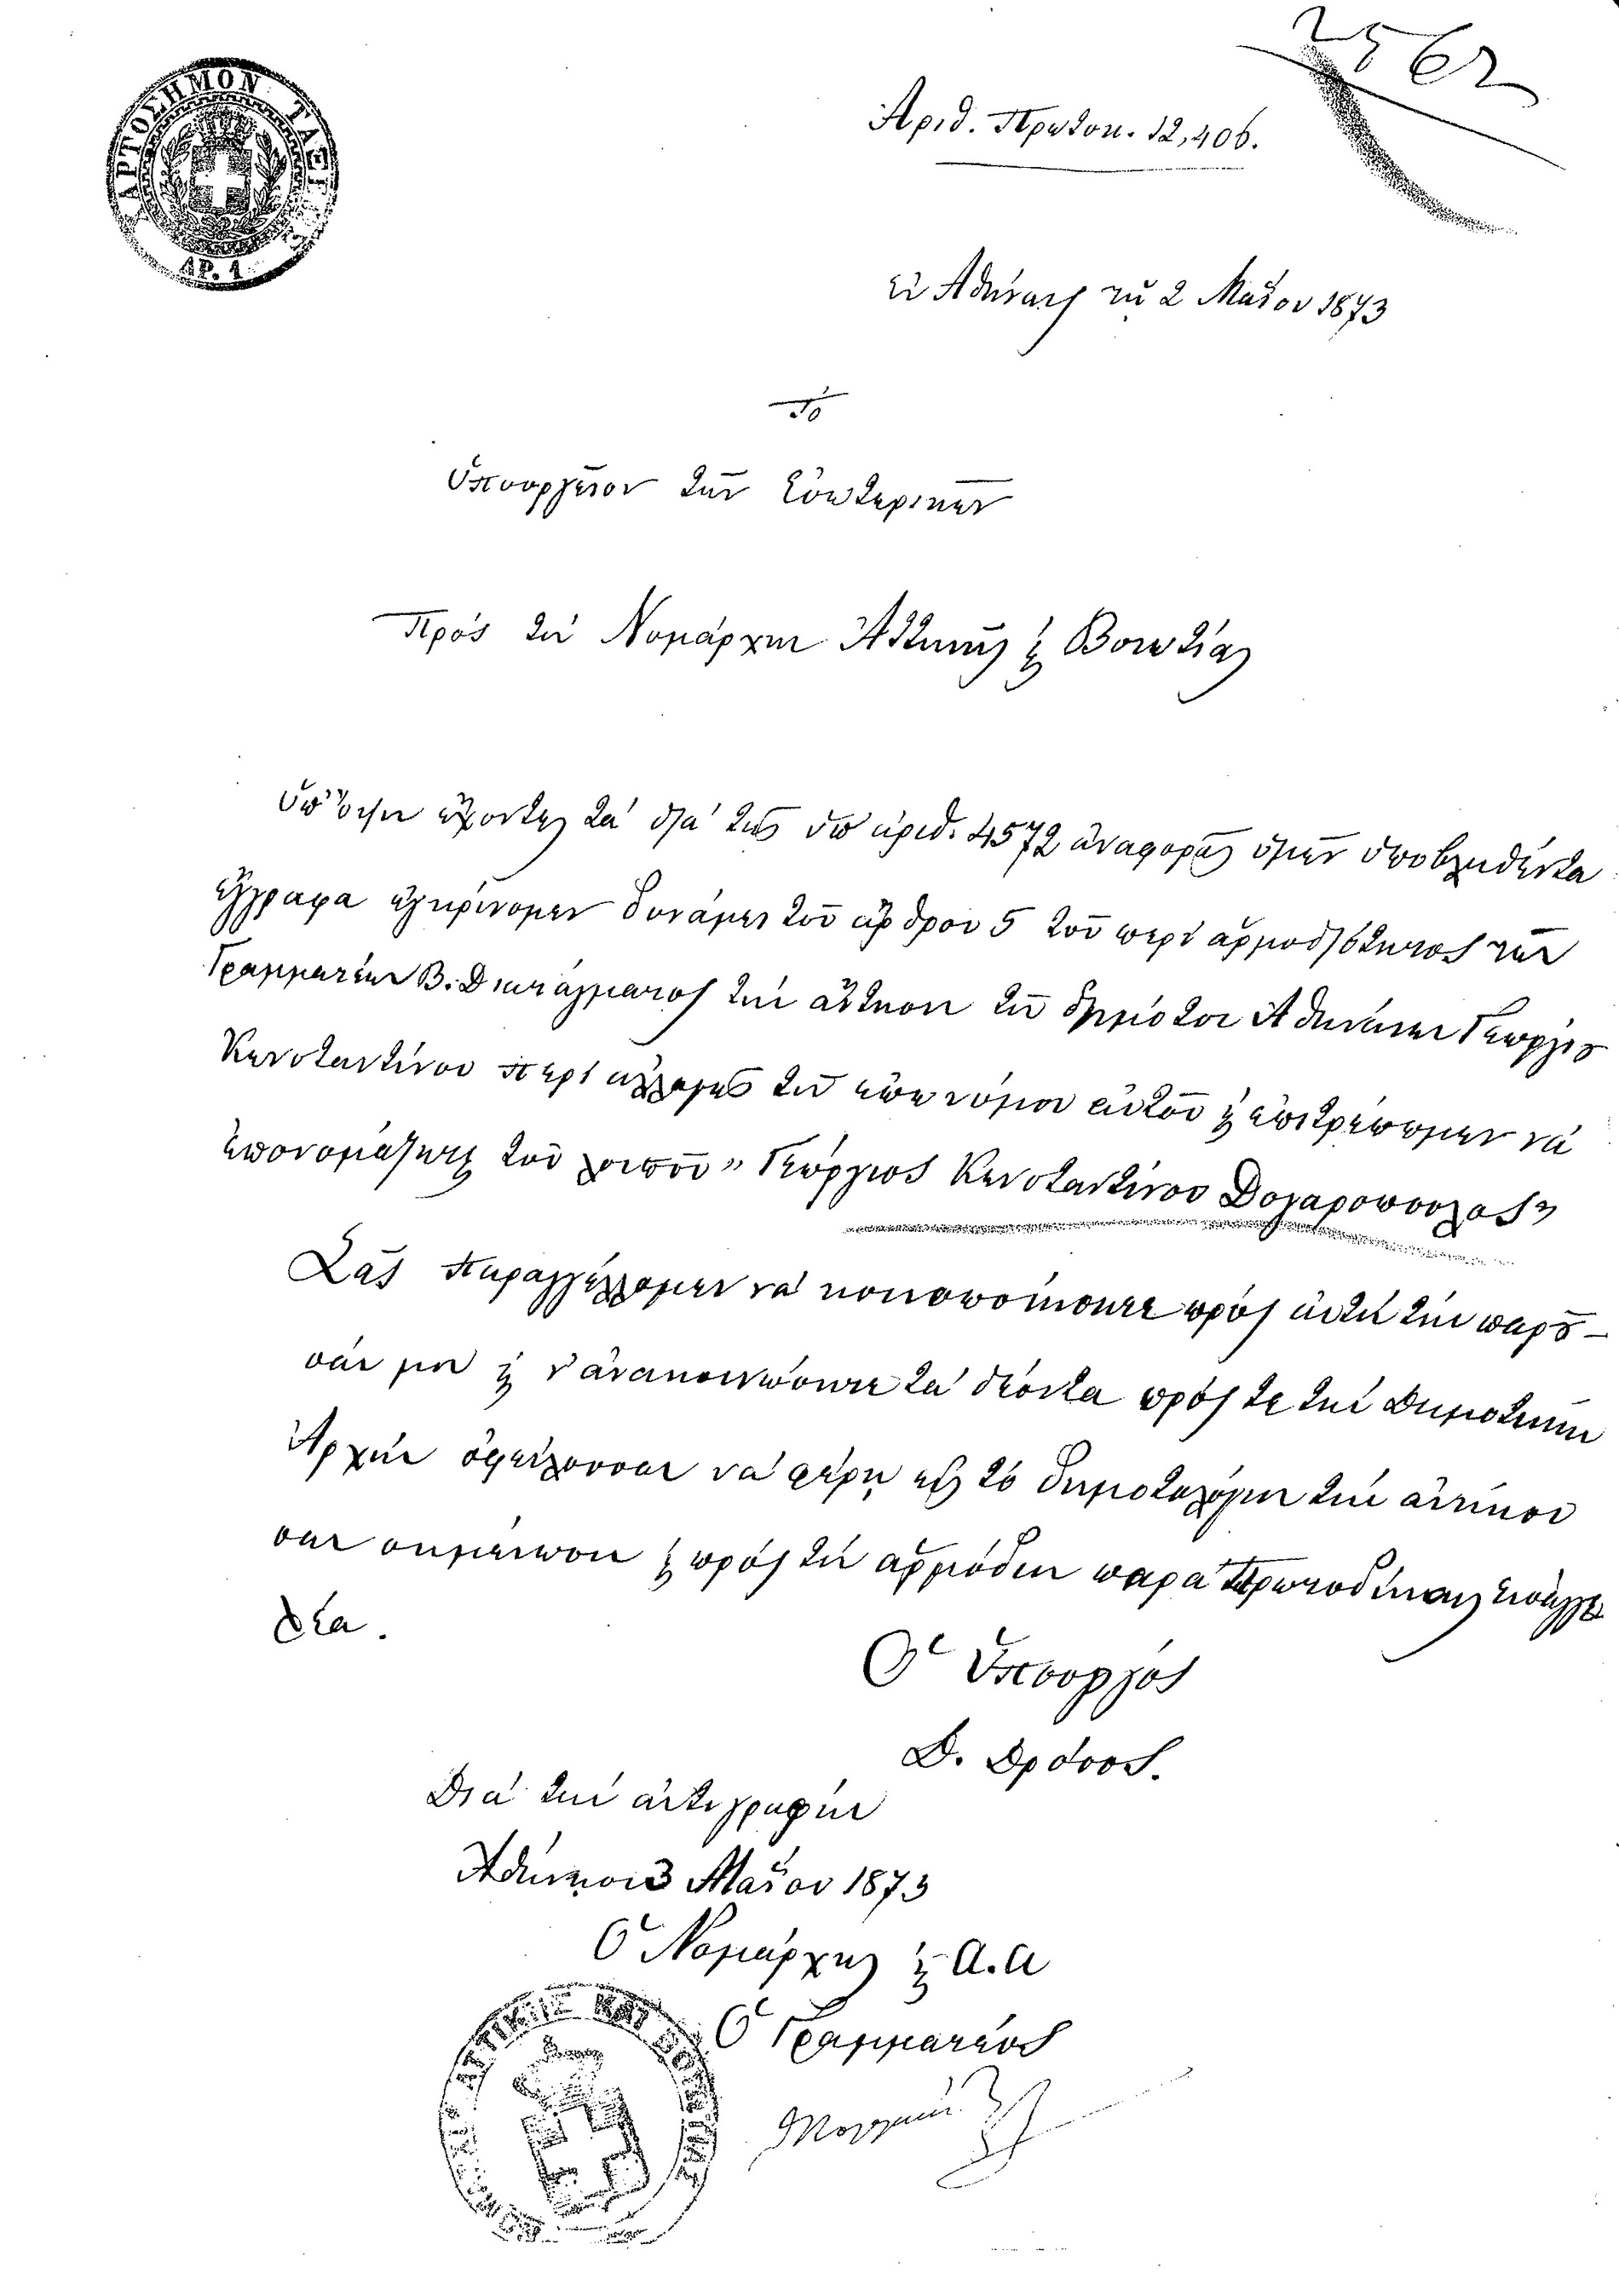 2562
ΧΑΡΤΟΣΗΜΟΝ ΤΑΞΕΩΣ
ΑΡ. 1
Ἀριθ. Πρωτοκ. 12,406.
ἐν Ἀθήναις τῇ 2 Μαΐου 1873
Τὸ
Ὑπουργεῖον τῶν Ἐσωτερικῶν
Πρὸς τὸν Νομάρχην Ἀττικῆς ϗ Βοιωτίας
Ὑπ' ὄψιν ἔχοντες τὰ διὰ τῆς ὑπ' ἀριθ. 4572 ἀναφορᾶς ὑμῶν ὑποβληθέντα
ἔγγραφα ἐγκρίνομεν δυνάμει τοῦ ἄρθρου 5 τοῦ περὶ ἁρμοδιότητος τῶν
Γραμματέων Β. Διατάγματος τὴν αἴτησιν τοῦ δημότου Ἀθηναίων Γεωργίου
Κωνσταντίνου περὶ ἀλλαγῆς τοῦ ἐπωνύμου αὐτοῦ ϗ ἐπιτρέπομεν νὰ
ἐπονομάζηται τοῦ λοιποῦ „ Γεώργιος Κωνσταντίνου Δολαροπουλος"
Σᾶς παραγγέλλομεν νὰ κοινοποιήσητε πρὸς αὐτὸν τὴν παροῦ–
σάν μου ϗ ν' ἀνακοινώσητε τὰ δέοντα πρός τε τὴν Δημοτικὴν
Ἀρχὴν ὀφείλουσαν νὰ φέρῃ εἰς τὸ δημοτολόγιον τὴν ἀνήκου
σαν σημείωσιν ϗ πρὸς τὸν ἁρμόδιον παρὰ Πρωτοδίκαις Εἰσαγγε
λέα.
Ὁ Ὑπουργὸς
Δ. Δρόσος.
Διὰ τὴν ἀντιγραφὴν
Ἀθήνησι 3 Μαΐου 1873
Ὁ Νομάρχης ϗ α.α
Ὁ Γραμματεὺς
ΑΤΤΙΚΗΣ ΚΑΙ ΒΟΙΩΤΙΑΣ